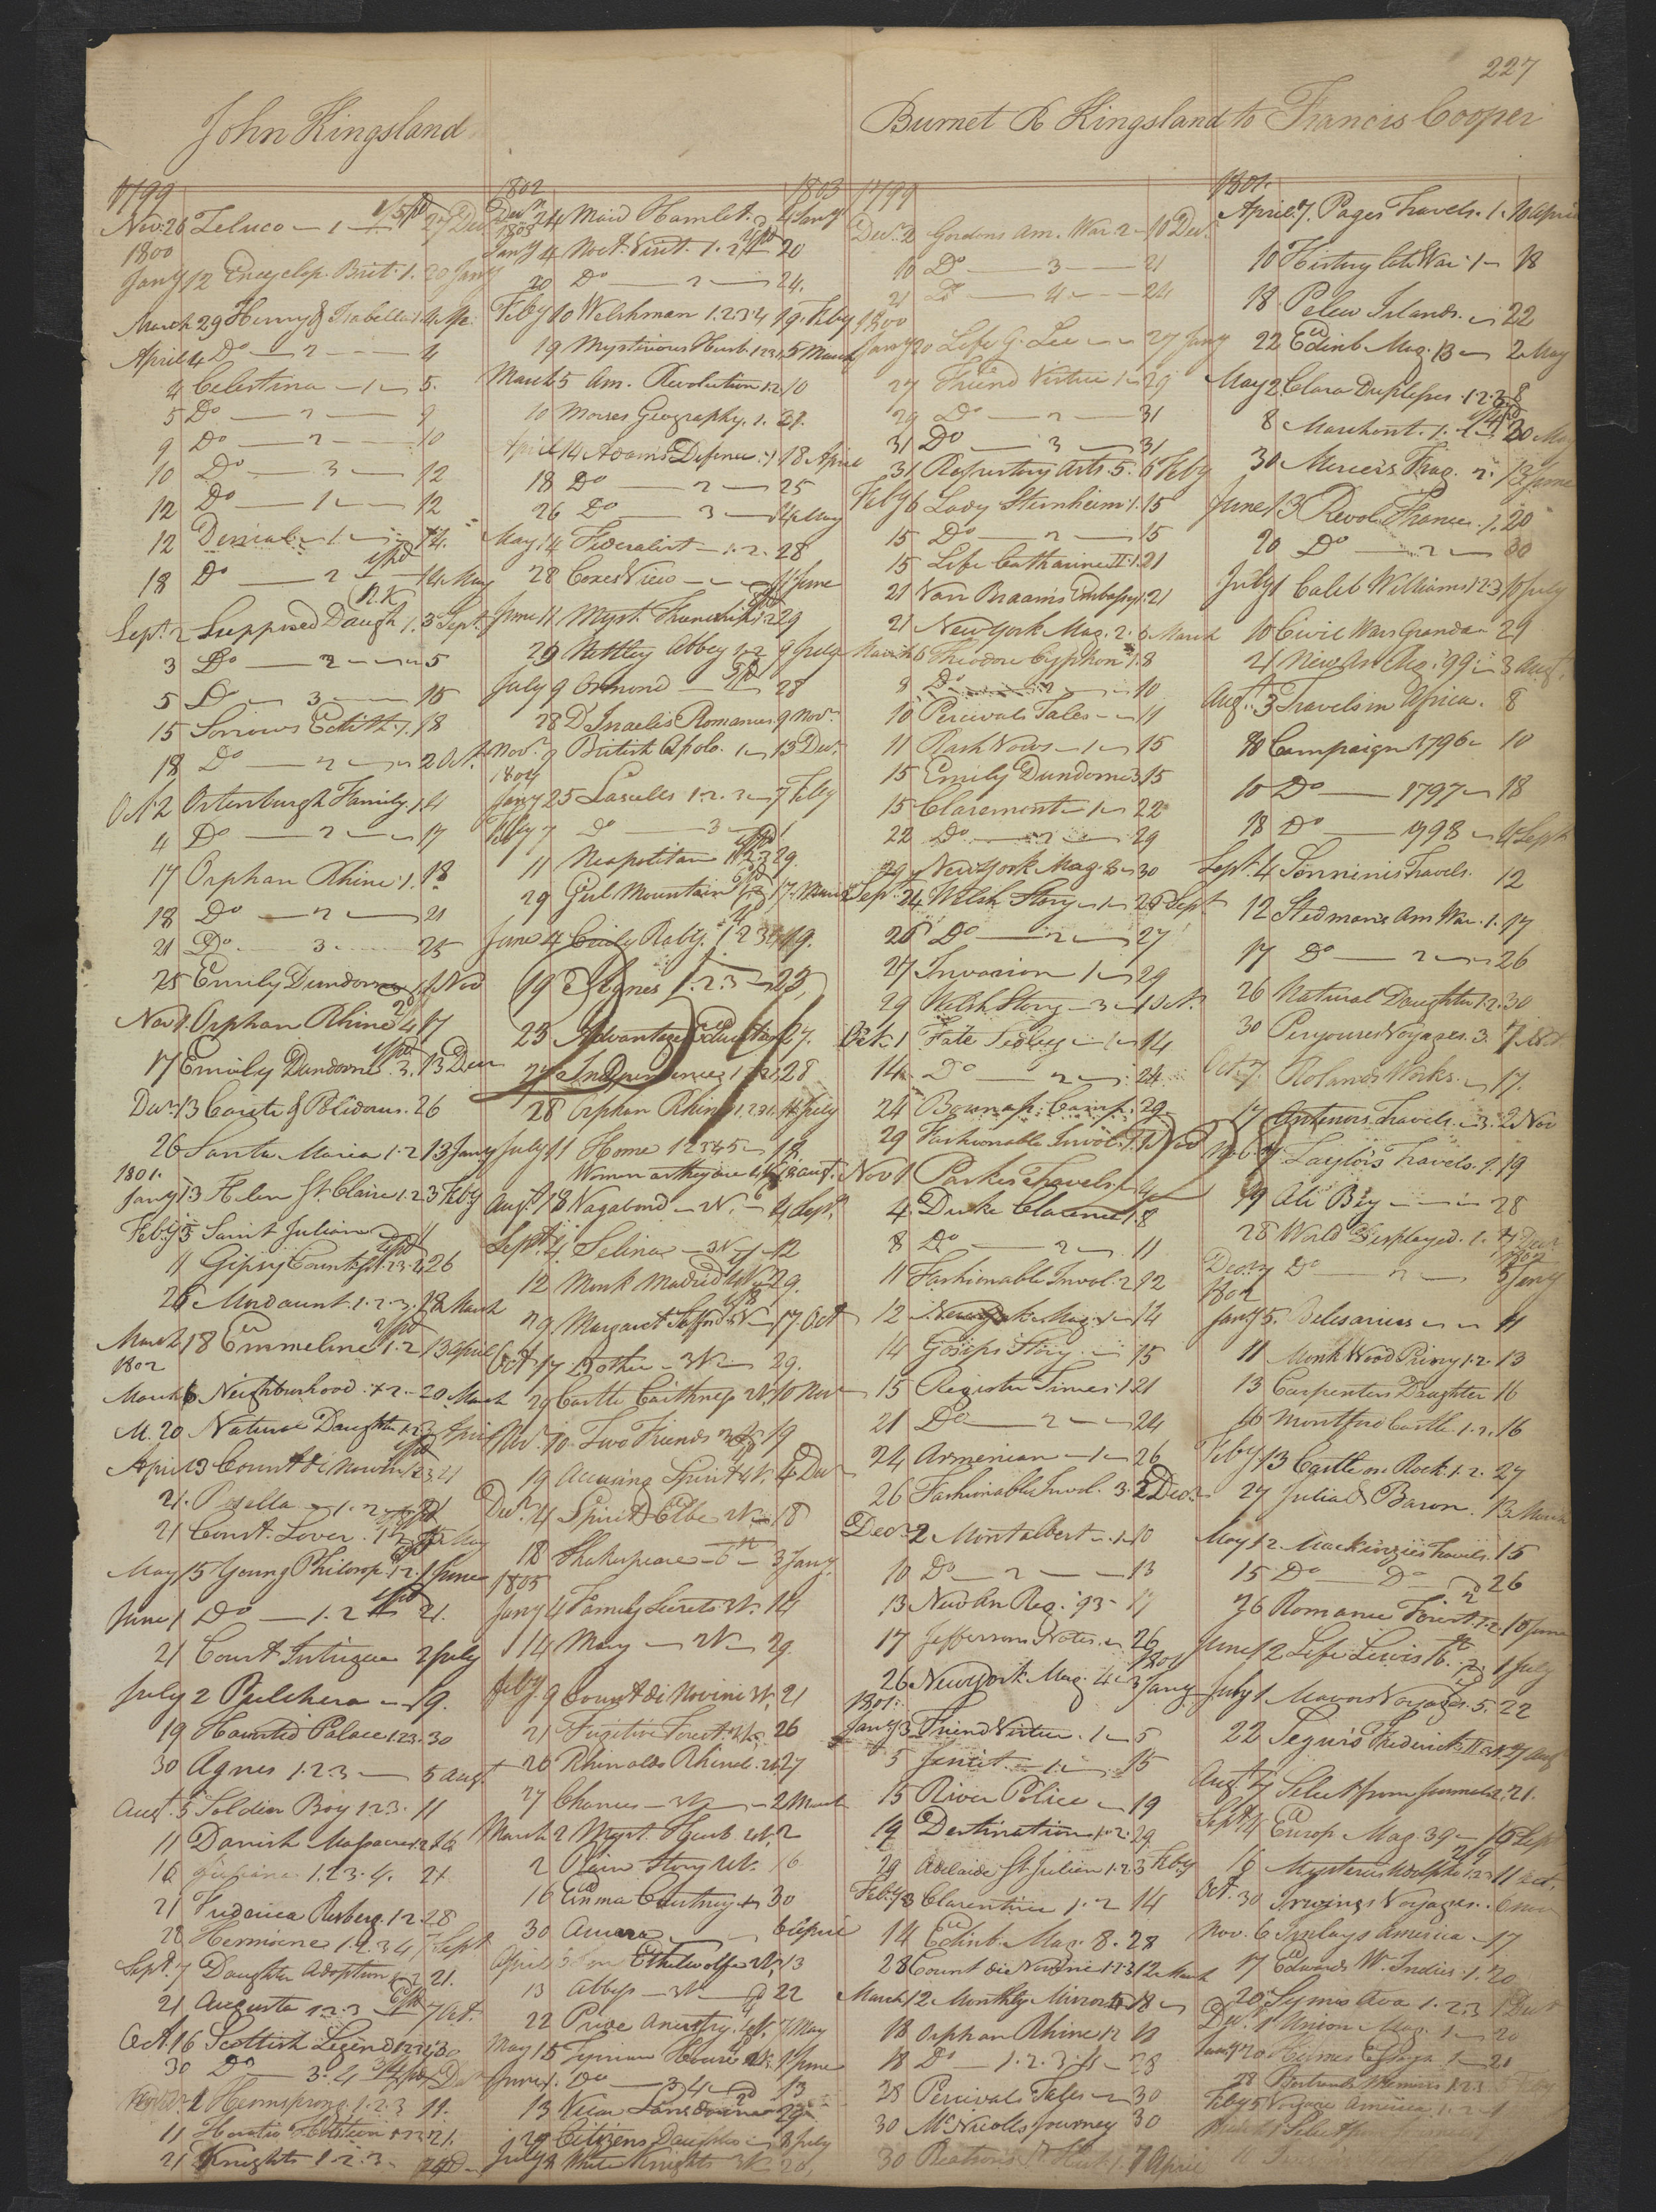 227
John Kingsland
1799
Nov. 26 Zeluco 1 27 Dec
1800
Jany 12 Encyclop. Brit. 1. 20 Jany
March 29 Henry & Isabella 1. 4 Ap.
April 4 Do 2 4
4 Celestina 1 5.
5 Do 2 9
9 Do 2 10
10 Do 3 12
12 Do 1 12
12 Denial 1 14.
18 Do 2 14 May
Sept. 2 Supposed Daugh 1. 3 Sept.
3 Do 2 5
5 Do 3 15
15 Sorrows Edith 1. 18
18 Do 2 2 Oct.
Oct 2 Ortenburgh Family 1. 4
4 Do 2 17
17 Orphan Rhine 1. 18
18 Do 2 21
21 Do 3 25
25 Emily Dundorne 1 Nov
Nov 1. Orphan Rhine 4 17
17 Emily Dundorne 3. 13 Decr
Decr 13 Carite & Polidorus. 26
26 Santa Maria 1.2 13 Jany
1801.
Jany 13 Helen St. Claire 1.2 3 Feby
Feby 5 Saint Julian 11
11 Gipsy Countess 1.2.3.4 26
26 Mordaunt. 1.2.3. 18 March
March 18 Emmeline 1.2 13 April
1802
March 6 Neighbourhood 1.2. 20 March
M. 20 Natural Daughter 1.2 April
April 13 Count di Novini 1.2.3 21
21. Rosella 1.2
21 Const. Lover. 1.2 May
May 15 Young Philosop. 1.2. 1 June
June 1 Do 1.2 21.
21 Court Intrigue 2 July
July 2 Pulchera 19.
19 Haunted Palace 1.2.3. 30
30 Agnes 1.2.3 5 Augt
Augt. 5 Soldier Boy 1.2.3. 11
11 Danish Massacre 1.2 16
16 1.2.3.4. 21
21 Frederica Risberg. 1.2 28
28 Hermione 1.2.3.4 7 Sept
Sept. 7 Daughter Adoption 1.2 21.
21 Augusta 1.2.3 7 Oct.
Oct. 16 Scottish Legend 1.2 30
30 Do 3.4
Hermsprong. 1.2.3 11.
11 Horatio Holstein 1.2.3 21.
21 Knights 1.2.3
1802 1803
Decr 24 Maid Hamlet. 2 4 Jany
1803
Jany 4 Noct. Visit. 1.2 20
20 Do 2 24.
Feby 10 Welshman 1.2.3.4 19. Feby
19 Mysterious Husb. 1.2.3. 5 March
March 5 Am. Revolution 1.2 10
10 Morses Geography. 1. 21.
April 14 Adams Defence 1 18 April
18 Do 2 25
26 Do 3 14 May
May 14 Federalist 1.2. 28
28 Coxes View 11 June
June 11 Myst. Friendship 1.2 29
29 Nettley Abbey 1.2 9 July
July 9 Ormond 28
28 D'Israelis Romances. 9 Nov.
Nov. 9 British Apolo. 1 13 Decr.
1804
Jany 25 Lascelles 1.2.3 7 Feby
Feby 7 Do 3
11 Neapolitan 1.2.3 29.
29 Girl Mountain 1.2 17. March
June 4 Emily Raby. 1.2.3.4 19.
19 Agnes 1.2.3 23
23 Advantage Education 27.
27 Independence 1.2. 28
28 Orphan Rhine 1.2.3. 11 July
July 11 Home 1 2 3 4 5 18
Women as they are 18 Augt.
Augt. 18 Vagabond 2V. 4 Sept.
Sept. 4 Selina 3V 12
12 Monk Madrid 29.
29 Margaret 17 Oct
Oct 17 Lothe 3V 29.
29 Castle Caithness 2V. 10 Nov
Nov. 10. Two Friends 19
19 Accusing Spirit 4V. 4 Decr
Decr. 4 Spirit Elbe 2V 18
18 Shakespeare 6 3 Jany.
1805
Jany 4 Family Secrets 14
14 May 2V 29.
Feby. 9 Count di Novini 3V. 21
21 Fugitive Forest 26
26 Rhinaldo Rhinal. 27
27 Chances 3V 2 March
March 2 Myst. Husb. 2
2 Plain Story 16
16 Emma Courtney 30
30 6 April
April Ethelwolfe 13
13 Abbess 3V 22
22 Price Ancestry. 4V. May
May 15 Tyrian House 1 June
June 1. Do 3 4 13
13 Vicar Lansdowne 29
29 Citizens Daughter 8 July
July 8 White Knights 3V 20.
Burnet R Kingsland to Francis Cooper
1799
Decr. 2 Gordons Am. War 2 10 Decr.
10 Do 3 21
21 Do 4 24
1800
Jany 20 Life G. Lee 27 Jany
27 Friend Virtue 1 29
29 Do 2 31
31 Do 3 31
31 Repertory Arts. 5. 6 Feby
Feby 6 Lady Sternheim 1. 15
15 Do 2 15
15 Life Catharine II 1. 21
21 Van Braams Embassy 1. 21
21 New York Mag. 2. 6 March
March 6 Theodore Cyphon 1. 8
8 Do 2 10
10 Percivals Tales 11
11 Rash Vows 1 15
15 Emily Dundorne 3 15
15 Claremont 1 22
22 Do 2 29
29 New York Mag. 3 30
Sepr. 24 Welsh Story 1 26 Sept
26 Do 2 27
27 Invasion 1 29
29 Welsh Story 3 1 Oct.
Oct. 1 Fate Sedley 1 14
14 Do 2 24
24 Bounap. Camp. 29
29 Fashionable Invol. 1. 1 Nov
Nov 1 Parkes Travels 4
4 Duke Clarence 1. 8
8 Do 2 11
11 Fashionable Invol. 2 12
12 New York Mag. 1 14
14 Gossips Story 15
15 Register Times 1. 21
21 Do 2 24
24 Armenian 1 26
26 Fashionable Invol. 3. 2 Decr.
Decr. 2 Montalbert 1. 10
10 Do 2 13
13 New An Reg. 93 17
17 Jeffersons Notes. 26
26 New York Mag. 4 3 Jany
1801.
Jany 3 Friend Virtue. 1 5
5 1 15
15 River Police 19
19 Destination 1.2. 29
29 Adelaide St. Julien 1.2 3 Feby
Feby 3 Clarentine 1.2 14
14 Edinb. Mag. 8. 28
28 Count di Novini 1.2.3 12 March
March 12 Monthly Mirror 18
18 Orphan Rhine 1.2 18
18 Do 1.2.3.4 28
28 Percivals Tales 30
30 McNicolls Journey 30
30 7 April
1801.
April 7. Pages Travels. 1. 10 April
10 History late War 1 18
18 Pelew Islands. 22
22 Edinb. Mag. 13 2 May
May 2. Clara Duplepes 1.2.3 8
8 Marchmont. 1. 30 May
30 Merciers Frag. 2. 13 June
June 13 Revol. France. 1. 20
20 Do 2 30
July 1 Caleb Williams 1.2.3 10 July
10 Civil Wars Granada 21
21 New An Reg. '99 3 Aug.
Aug. 3 Travels in Africa. 8
8 Campaign 1796 10
10 Do 1797 18
18 Do 1798 4 Sept
Sept. 4 Sonninis Travels. 12
12 Stedmans Am War. 1. 17
17 Do 2 26
26 Natural Daughter 1.2. 30
30 Voyages. 3. 7 Oct
Oct. 7. Rolands Works. 17.
17 Antenors Travels. 3. 2 Nov
Taylors Travels. 19
19 Ali Bey 28
28 World Displayed. 1. 7 Decr
Decr. 7 Do 2 5 Jany
1802
Jany 5. Belesarius 11
11 Monk Wood Priory 1.2. 13
13 Carpenters Daughter 16
16 Montford Castle. 1.2. 16
Feby 13 Castle on Rock. 1.2. 27
27 Julia & Baron. 13 March
May 12 Mackinzies Travels. 15
15 Do Do 26
26 Romance Forest 1.2. 10 June
June 12 Life Lewis 16. 1 July
July 1 Mavors Voyages. 5. 22
22 Segurs Frederick II 7 Aug
Augt. 7 Select from Journals 2. 21.
Sept. 4 Europ Mag. 39 16 Sept
16 Mysteries Udolpho 1.2.3 11 Oct.
Oct. 30 Voyages. 6 Nov
Nov. 6 Imlays America 17
17 Edwards W. Indies. 1. 20
20 Symes Ava 1.2.3 1 Decr
Decr. 1 Union Mag. 1 20
20 Essays 1 21
28 Memoirs 1.2.3
Feby 5 America 1.2